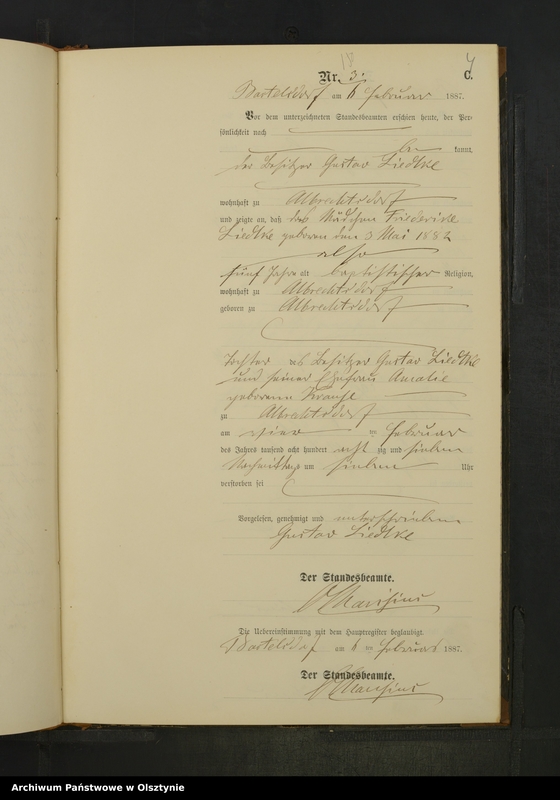 Nr. 3.
C.
Bartelsdorf am 6 Februar 1887.
Vor dem unterzeichneten Standesbeamten erschien heute, der Per-
sönlichkeit nach
kannt,
der Besitzer Gustav Liedtke
wohnhaft zu Albrechtsdorf
und zeigte an, daß das Mädchen Friedericke
Liedtke geboren den 3 Mai 1882
also
fünf Jahre alt baptistischer Religion,
wohnhaft zu Albrechtsdorf
geboren zu Albrechtsdorf
Tochter des Besitzer Gustav Liedtke
und seiner Ehefrau Amalie
geborenen Krause
zu Albrechtsdorf
am vier ten Februar
des Jahres tausend acht hundert acht zig und sieben
Nachmittags um sieben Uhr
verstorben sei
Vorgelesen, genehmigt und unterschrieben
Gustav Liedtke
Der Standesbeamte.
Die Uebereinstimmung mit dem Hauptregister beglaubigt.
Bartelsdorf am 6 ten Februar 1887.
Der Standesbeamte.
Archiwum Państwowe w Olsztynie